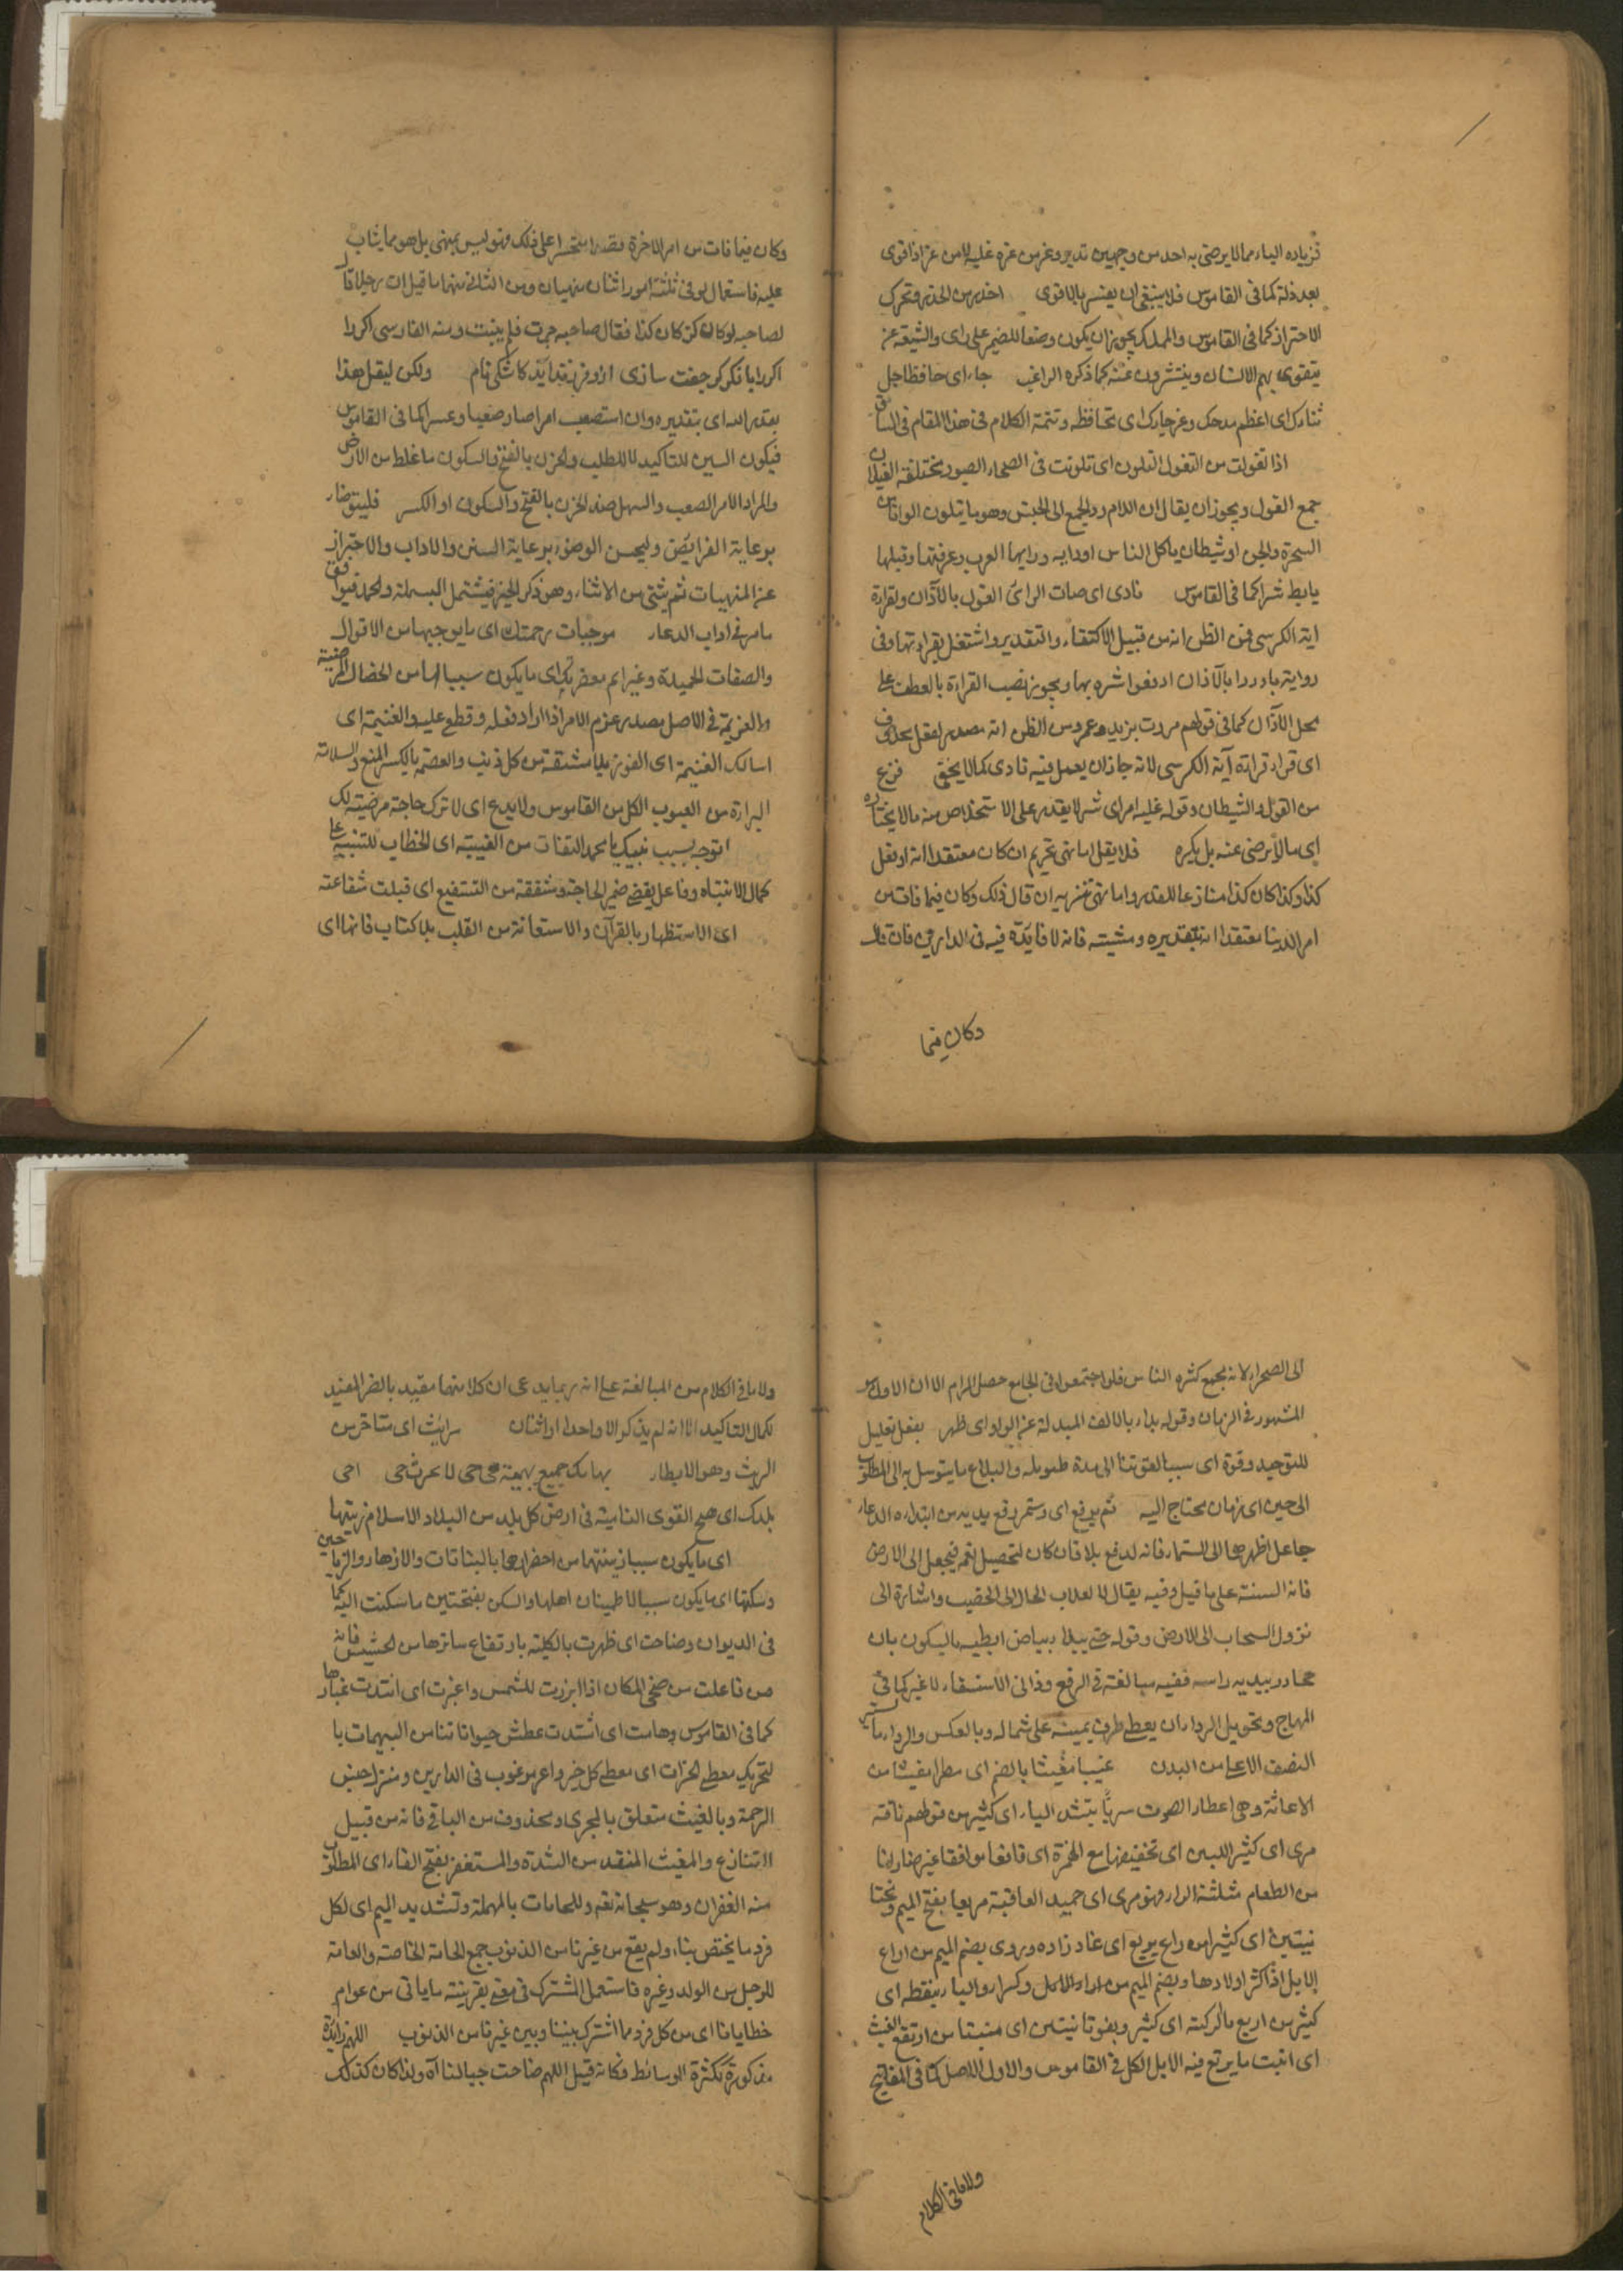 فزياده الياء مما لا يرضى به احد من وجهين تدبر وعز من عزه غلبه لا من عز اذا قوى
بعد ذلة كما فى القاموس فلا ينبغى ان يفسر بالاقوى احذر من الحذر وتحرك
الاحتراز كما فى القاموس والمملك يجوز ان يكون وصفا للضمير على راى والشيعة عن
يتقوى بهم الانسان وينتشرون عنه كما ذكره الراغب جاء اى حافظا جل
ثناءك اى اعظم مدحك وعز جارك اى تحافظه وتتمة الكلام فى هذا المقام فى السابق
اذا تغولت من التغول التلون اى تلونت فى الصحراء الصور مختلفة الغيلان
جمع الغول ويجوز ان يقال ان اللام رد الجمع الى الجنس وهو ما يتلون الوانا من
السحرة والجن او شيطان ياكل الناس او دابه وراتها العرب وعرفتها وقتلها
يابط شراكما فى القاموس نادى اى صات الرائى الغول بالآذان وبقراءة
اية الكرسى فمن الظن انه من قبيل الاكتفاء والتقدير واشتغل بقراءتها وفى
رواية بادروا بالآذان ادفعوا شره بها ويجوز نصب القراءة بالعطف على
محل الآذان كما فى قولهم مررت بزيد وعمرو من الظن انه مصدر لفعل محذوف
اى قراء قراءة آية الكرسى لانه جاز ان يعمل فيه نادى كما لا يخفى فزع
من الغول والشيطان وقوله غلبه امر اى شر لا يقدر على الاستخلاص منه ما لا يختاره
اى ما لا يرضى عنه بل يكره فلا يقل اما نهى تحريم ان كان معتقدا انه لو فعل
كذا وكذا كان كذا منازعا للقدير واما نهى تنزيه ان قال ذلك وكان فيما فات من
امر الدنيا معتقدا انه بتقديره ومشيته فانه لا فايدة فيه فى الدارين فان قال
وكان فيما
وكان فيما فات من امر الاخرة بقصد التحسر على ذلك فهو ليس بمنهى بل هو مما يثاب
عليه فاستعمال لو فى ثلثة امور اثنان منهيان ومن الثلاثة منها ما قيل ان رجلا قال
لصاحبه لو كان كز كان كذا فقال صاحبه فلم ينبت ومنه الفارسى اكر را
اكر را با نكر كر جفت سازى ازو فرزند ايد كاشكى نام ولكن ليقل هذا
بقدر الله اى بتقديره وان استصعب امر اصار صعبا وعسرا كما فى القاموس
فيكون السين للتاكيد لا للطلب والحزن بالفتح فالسكون ما غلظ من الارض
والمراد الامر الصعب والسهل ضد الحزن بالفتح والسكون او الكسر فليتوضاء
برعاية الفرايض وليحسن الوضوء برعاية السنن والاداب والاحتراز
عن المنهيات ثم يثنى من الاثناء وهو ذكر الخير فيشتمل البسملة والحمد فيوافق
ما مر فى اداب الدعاء موجبات رحمتك اى ما يوجبها من الاقوال
والصفات الحميدة وعزايم مغفرتك اى ما يكون سببا لها من الخصال المرضية
والعزيمة فى الاصل مصدر عزم الامر اذا اراد فعله وقطع عليه والغنيمة اى
اسالك الغنيمة اى الفوز بلا مشقة من كل ذنب والعصمة بالكسر المنع والسلامة
البراءة من العيوب الكل من القاموس ولا يدع اى لا ترك حاجة مرضية لك
اتوجه بسبب نبيك يا محمد التفات من الغيبة اى الخطاب للتنبيه على
كمال الانتباه وفاعل يقضى ضمير الحاجة وشفقه من التشفيع اى قبلت شفاعته
اى الاستظهار بالقرآن والاستعانة من القلب بلا كتاب فانها اى
الى الصحراء لانه يجمع كثرة الناس فلو اجتمعوا فى الجامع حصل المرام الا ان الاول هو
المشهور فى الزمان وقوله بداء بالالف المبدلة عن الواو اى ظهر بفعل تعليل
للتوحيد وقوة اى سببا لقوتنا الى مدة طويلة والبلاغ ما يتوسل به الى المطلوب
الى حين اى زمان محتاج اليه ثم يرفع اى وستمر رفع يديه من ابتداء الدعاء
جاعل اظهرها الى السماء فانه لدفع بلا فان كان لتحصيل نعم فيجعل الى الارض
فانه السنة على ما قيل وفيه يقال لا لعلاب الحال الى الخصيب واشارة الى
نزول السحاب الى الارض وقوله حتى يبدا بياض ابطيه بالسكون بان
يحاذر بيديه راسه ففيه مبالغة فى الرفع وذا فى الاستسقاء لا غير كما فى
المنهاج وتحويل الرداء ان يعطى طرف يمينه على شماله وبالعكس والرداء ما يستر
النصف الاعلى من البدن غيبا مغيثا بالضم اى مطرا مغيثا من
الاغاثة وهى اعطاء الصوت مريا بتشد الياء اى كثير من قولهم ناقة
مرى اى كثير اللبن اى تخفيفها مع الهمزة اى قانعا موافقا غير ضار لنا
من الطعام مثلثة الراء فهو مرى اى حميد العاقبة مريعا بفتح الميم وتحتا
نيتين اى كثيرا من راع يريع اى عاد زاده وروى بضم الميم من اراع
الابل اذا كثر اولادها وبضم الميم من اراد الابل وكسر الباء بنقطه اى
كثير من اربع ما لركبته اى كثير وبفوتا نيتين اى منبتا من ارتع الغيث
اى انبت ما يرتع فيه الابل الكل فى القاموس والاول الاصل كما فى المفاتيح
ولا ما فى الكلام
ولا ما فى الكلام من المبالغة على انه ربما يدعى ان كلا منهما مقيد بالضر المفيد
لكمال التاكيد الا انه لم يذكر الا واحدا او اثنان رايث اى متاخر من
الريث وهو الابطاء بهايمك جميع بهيمة هى حى لا عرث حى احى
بلدك اى هيج القوى النامية فى ارض كل بلد من البلاد الاسلام زينتها
اى ما يكون سببا زينتها من اخضرارها بالنباتات والازهار والرياحين
وسكنها اى ما يكون سببا لاطمينان اهلها والسكن بفتحتين ما سكنت اليه كما
فى الديوان وضاحت اى ظهرت بالكلية بارتفاع ساترها من الحشيش فانه
من فاعلت من ضحى المكان اذا برزت للشمس واغبرت اى اشتدت غبارها
كما فى القاموس وهامت اى اشتدت عطش حيواناتنا من البهيمات با
لتحريك معطى الخيرات اى معطى كل خير وامر مرغوب فى الدارين ومنزل جنس
الرحمة وبالغيث متعلق بالمجرى ومحذوف من الباقى فانه من قبيل
التنازع والمغيث المنقذ من الشدة والمستغفر بفتح الفاء اى المطلوب
منه الغفران وهو سبحانه تعه وللحامات بالمهملة وتشديد الميم اى لكل
فرد ما يختص بنا ولم يقع من غيرنا من الذنوب جمع الحامة الخاصة والعامة
للرجل من الولد وغيره فاستعمل المشترك فى معنى بقرينة ما ياتى من عوام
خطايانا اى من كل فرد مما اشترك بيننا وبين غيرنا من الذنوب اللهم زايدة
مذكورة لكثرة الوسائط فكانه قيل اللهم ضاحت جبالنا آه ولذا كان كذلك